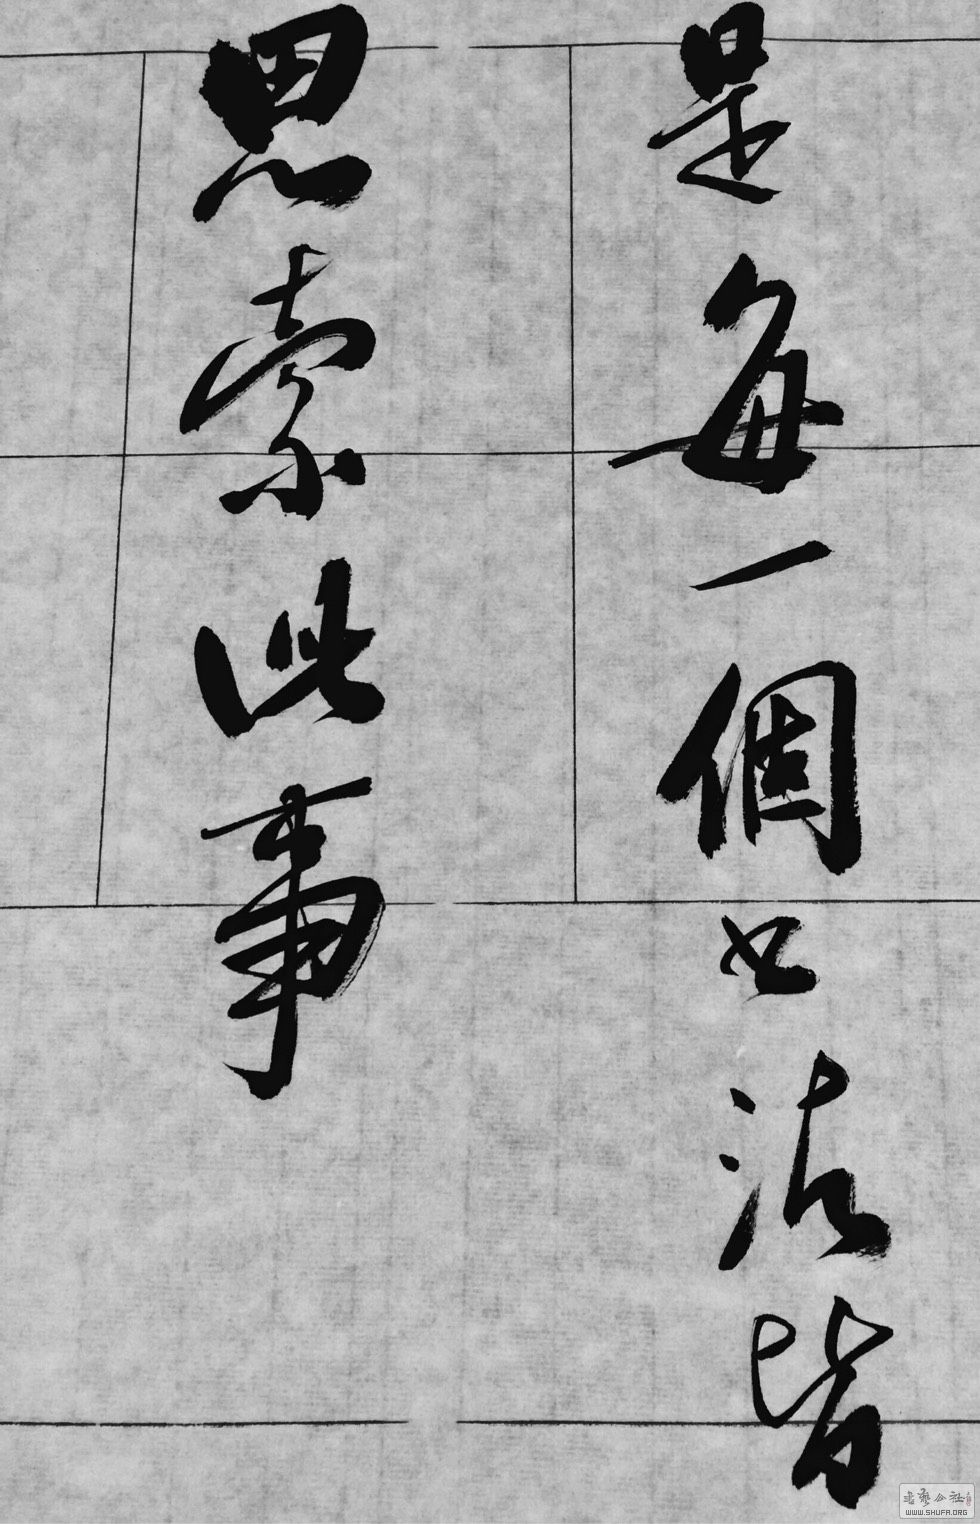 是每一個法皆
思索此事
书艺公社
WWW.SHUFA.ORG